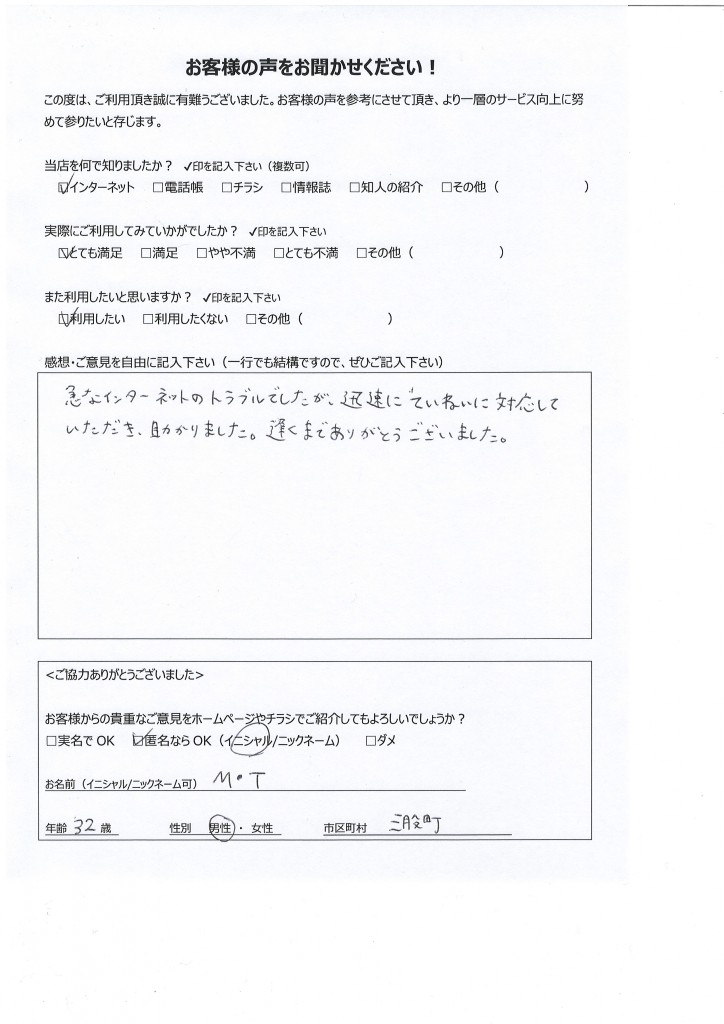 お客様の声をお聞かせください！
この度は、ご利用頂き誠に有難うございました。お客様の声を参考にさせて頂き、より一層のサービス向上に努
めて参りたいと存じます。
当店を何で知りましたか？ ✓印を記入下さい（複数可）
☑インターネット □電話帳 □チラシ □情報誌 □知人の紹介 □その他（ ）
実際にご利用してみていかがでしたか？ ✓印を記入下さい
☑とても満足 □満足 □やや不満 □とても不満 □その他（ ）
また利用したいと思いますか？ ✓印を記入下さい
☑利用したい □利用したくない □その他（ ）
感想・ご意見を自由に記入下さい（一行でも結構ですので、ぜひご記入下さい）
急なインターネットのトラブルでしたが、迅速にていねいに対応して
いただき、助かりました。遅くまでありがとうございました。
<ご協力ありがとうございました>
お客様からの貴重なご意見をホームページやチラシでご紹介してもよろしいでしょうか？
□実名でOK ☑匿名ならOK（イニシャル/ニックネーム） □ダメ
お名前（イニシャル/ニックネーム可） M・T
年齢 32 歳 性別 男性・女性 市区町村 三股町